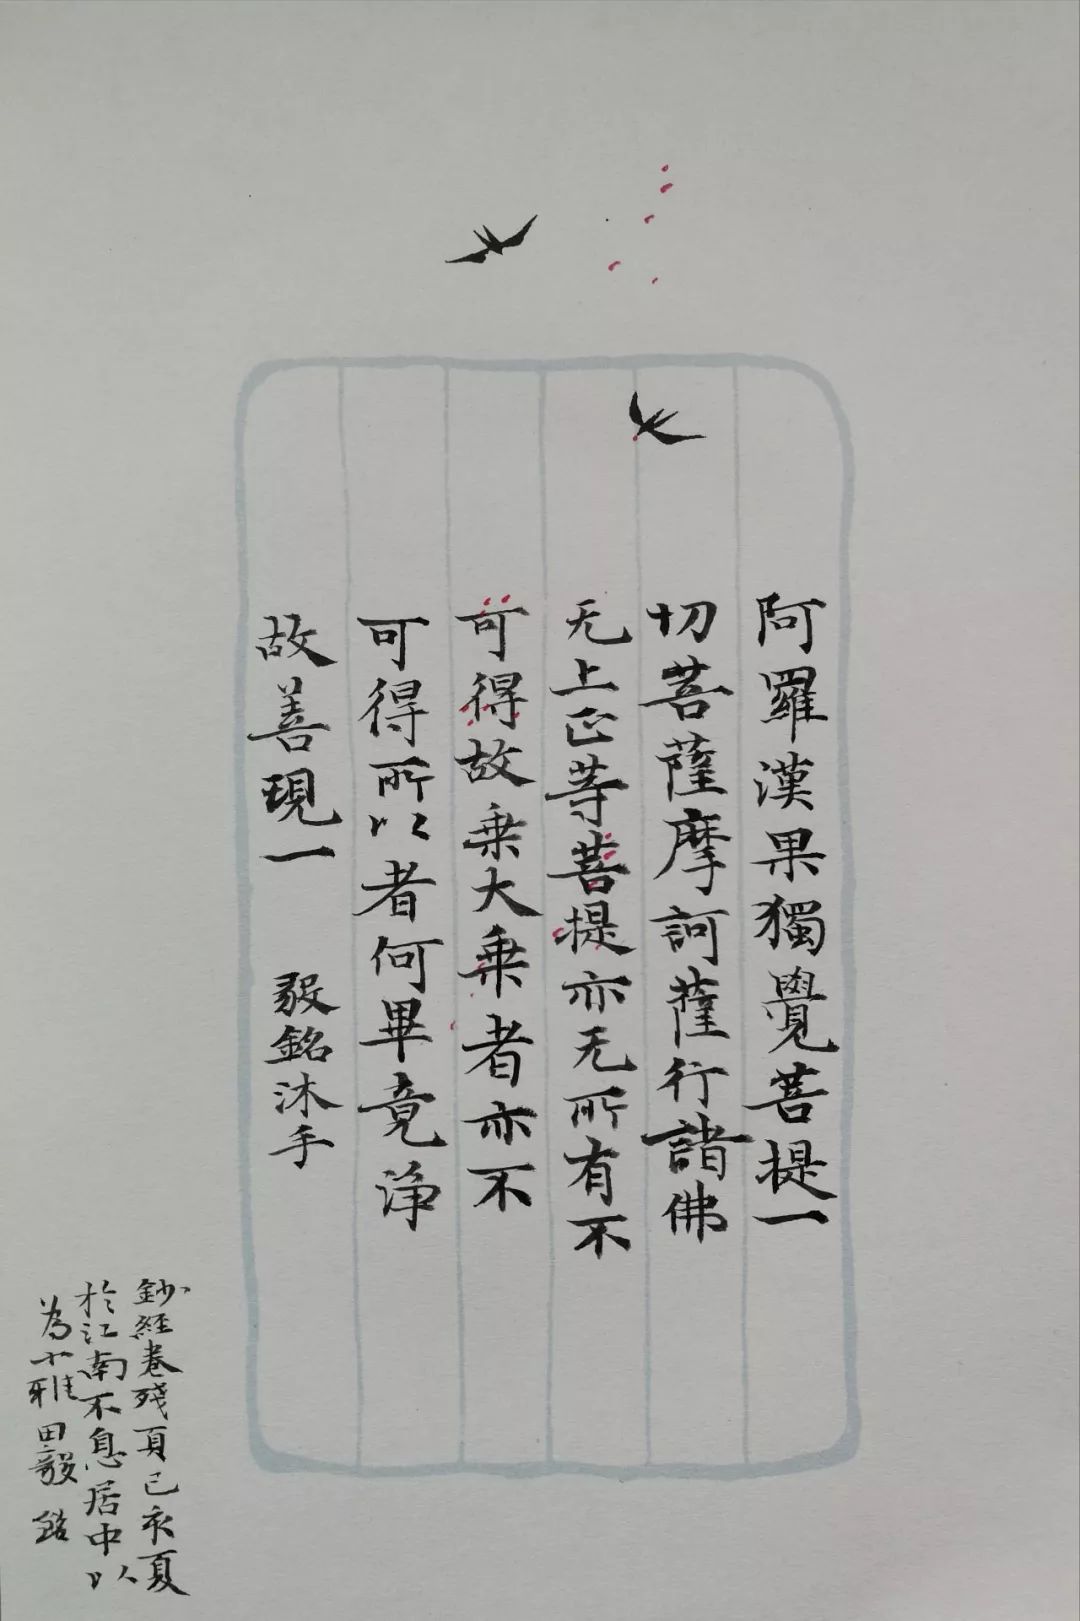 阿羅漢果獨覺菩提一
切菩薩摩訶薩行諸佛
无上正等菩提亦无所有不
可得故乗大乗者亦不
可得所以者何畢竟淨
故善現一
毅銘沐手
鈔經卷殘頁己亥夏
於江南不息居中以
為小雅田毅銘